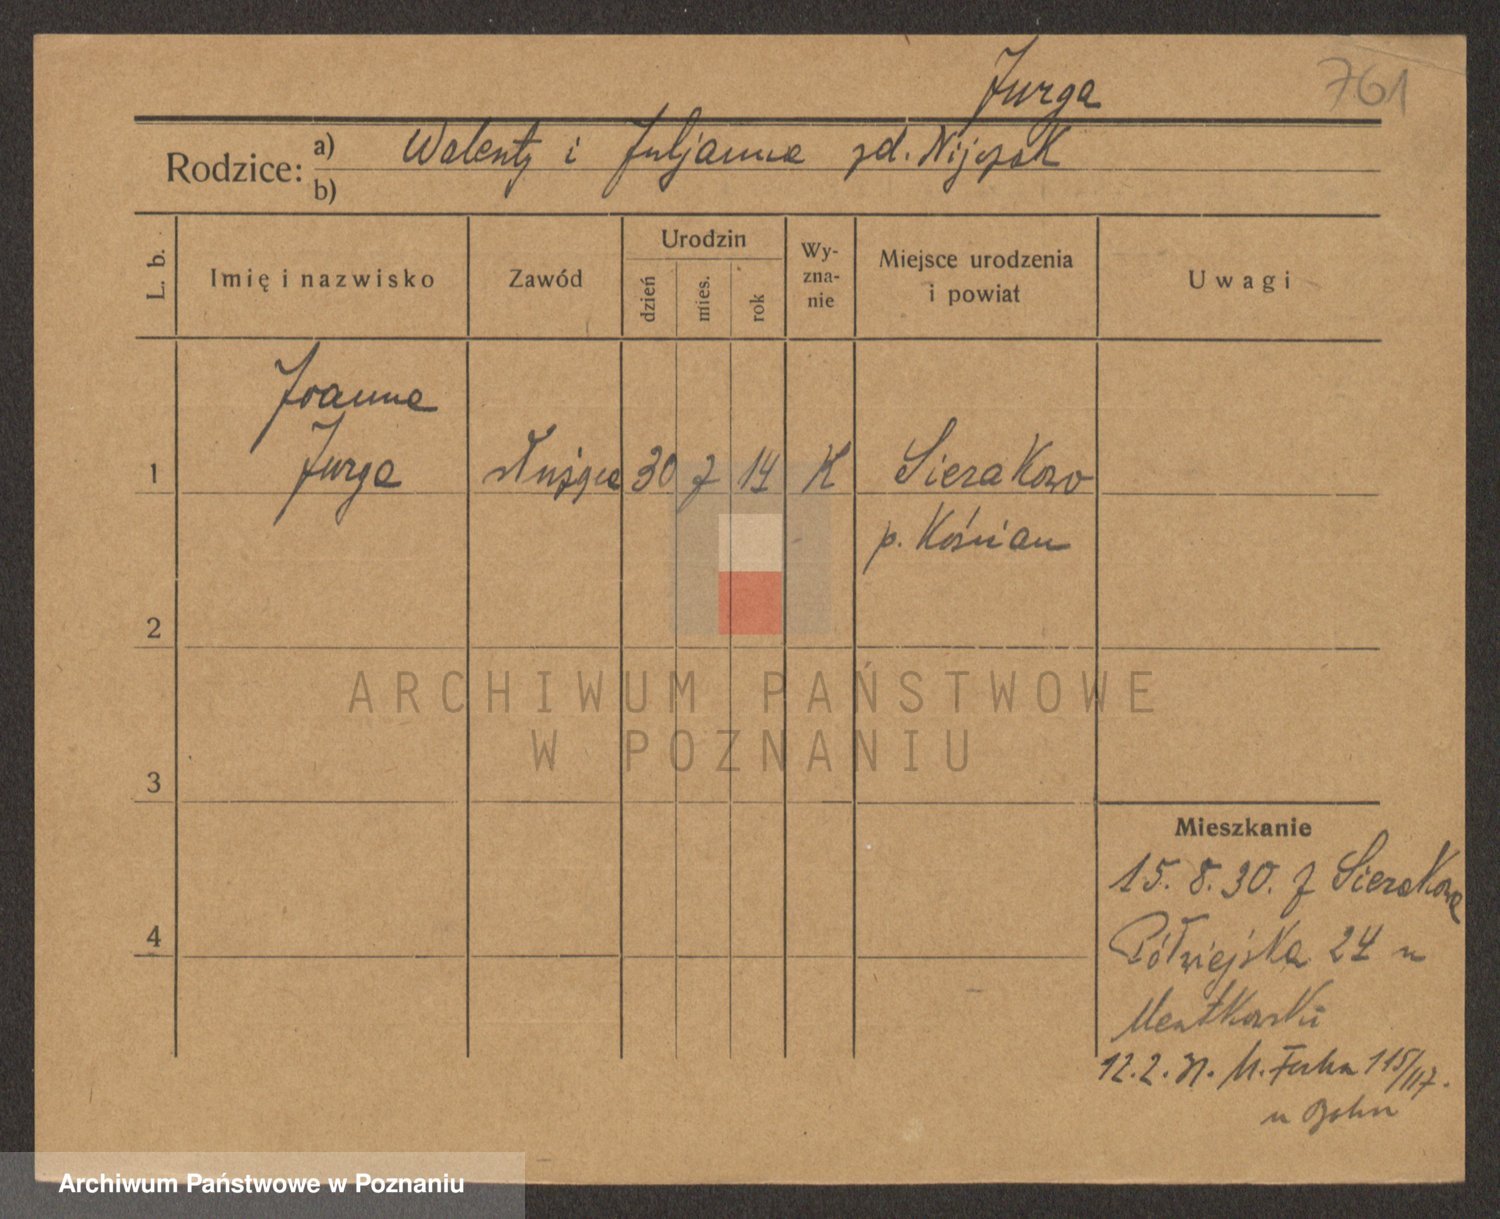 Jurga
761
Rodzice:
a) Walenty i Juljanna zd. Nijczak
b)
L. b.
Imię i nazwisko
Zawód
Urodzin
dzień
mies.
rok
Wy-
zna-
nie
Miejsce urodzenia
i powiat
Uwagi
Joanna
1 Jurga służąca 30 7 14 K Sierakowo
p. Kościan
2
3
4
Mieszkanie
15. 8. 30. z Sierakowa
Półwiejska 24 u
12. 2. 31. M. Focha 115/117.
u
ARCHIWUM PAŃSTWOWE
W POZNANIU
Archiwum Państwowe w Poznaniu